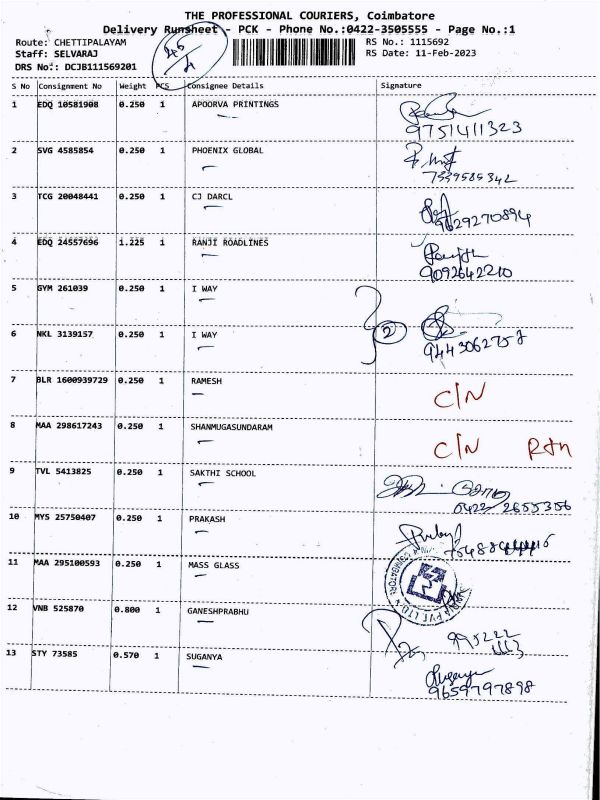 THE PROFESSIONAL COURIERS, Coimbatore
Delivery Runsheet - PCK - Phone No.:0422-3505555 - Page No.:1
Route: CHETTIPALAYAM RS No.: 1115692
Staff: SELVARAJ RS Date: 11-Feb-2023
DRS No.: DCJB111569201
S No Consignment No Weight PCS Consignee Details Signature
1 EDQ 10581908 0.250 1 APOORVA PRINTINGS
9751411323
2 SVG 4585854 0.250 1 PHOENIX GLOBAL
7559585342
3 TCG 20048441 0.250 1 CJ DARCL
9629270894
4 EDQ 24557696 1.225 1 RANJI ROADLINES
9092642210
5 GYM 261039 0.250 1 I WAY
2
6 NKL 3139157 0.250 1 I WAY
9443062757
7 BLR 1600939729 0.250 1 RAMESH C/N
8 MAA 298617243 0.250 1 SHANMUGASUNDARAM C/N Rtn
9 TVL 5413825 0.250 1 SAKTHI SCHOOL
0422 2655356
10 MYS 25750407 0.250 1 PRAKASH
11 MAA 295100593 0.250 1 MASS GLASS
COIMBATORE PVT LTD
12 VNB 525870 0.800 1 GANESHPRABHU
995222
1113
13 STY 73585 0.570 1 SUGANYA
9659797898